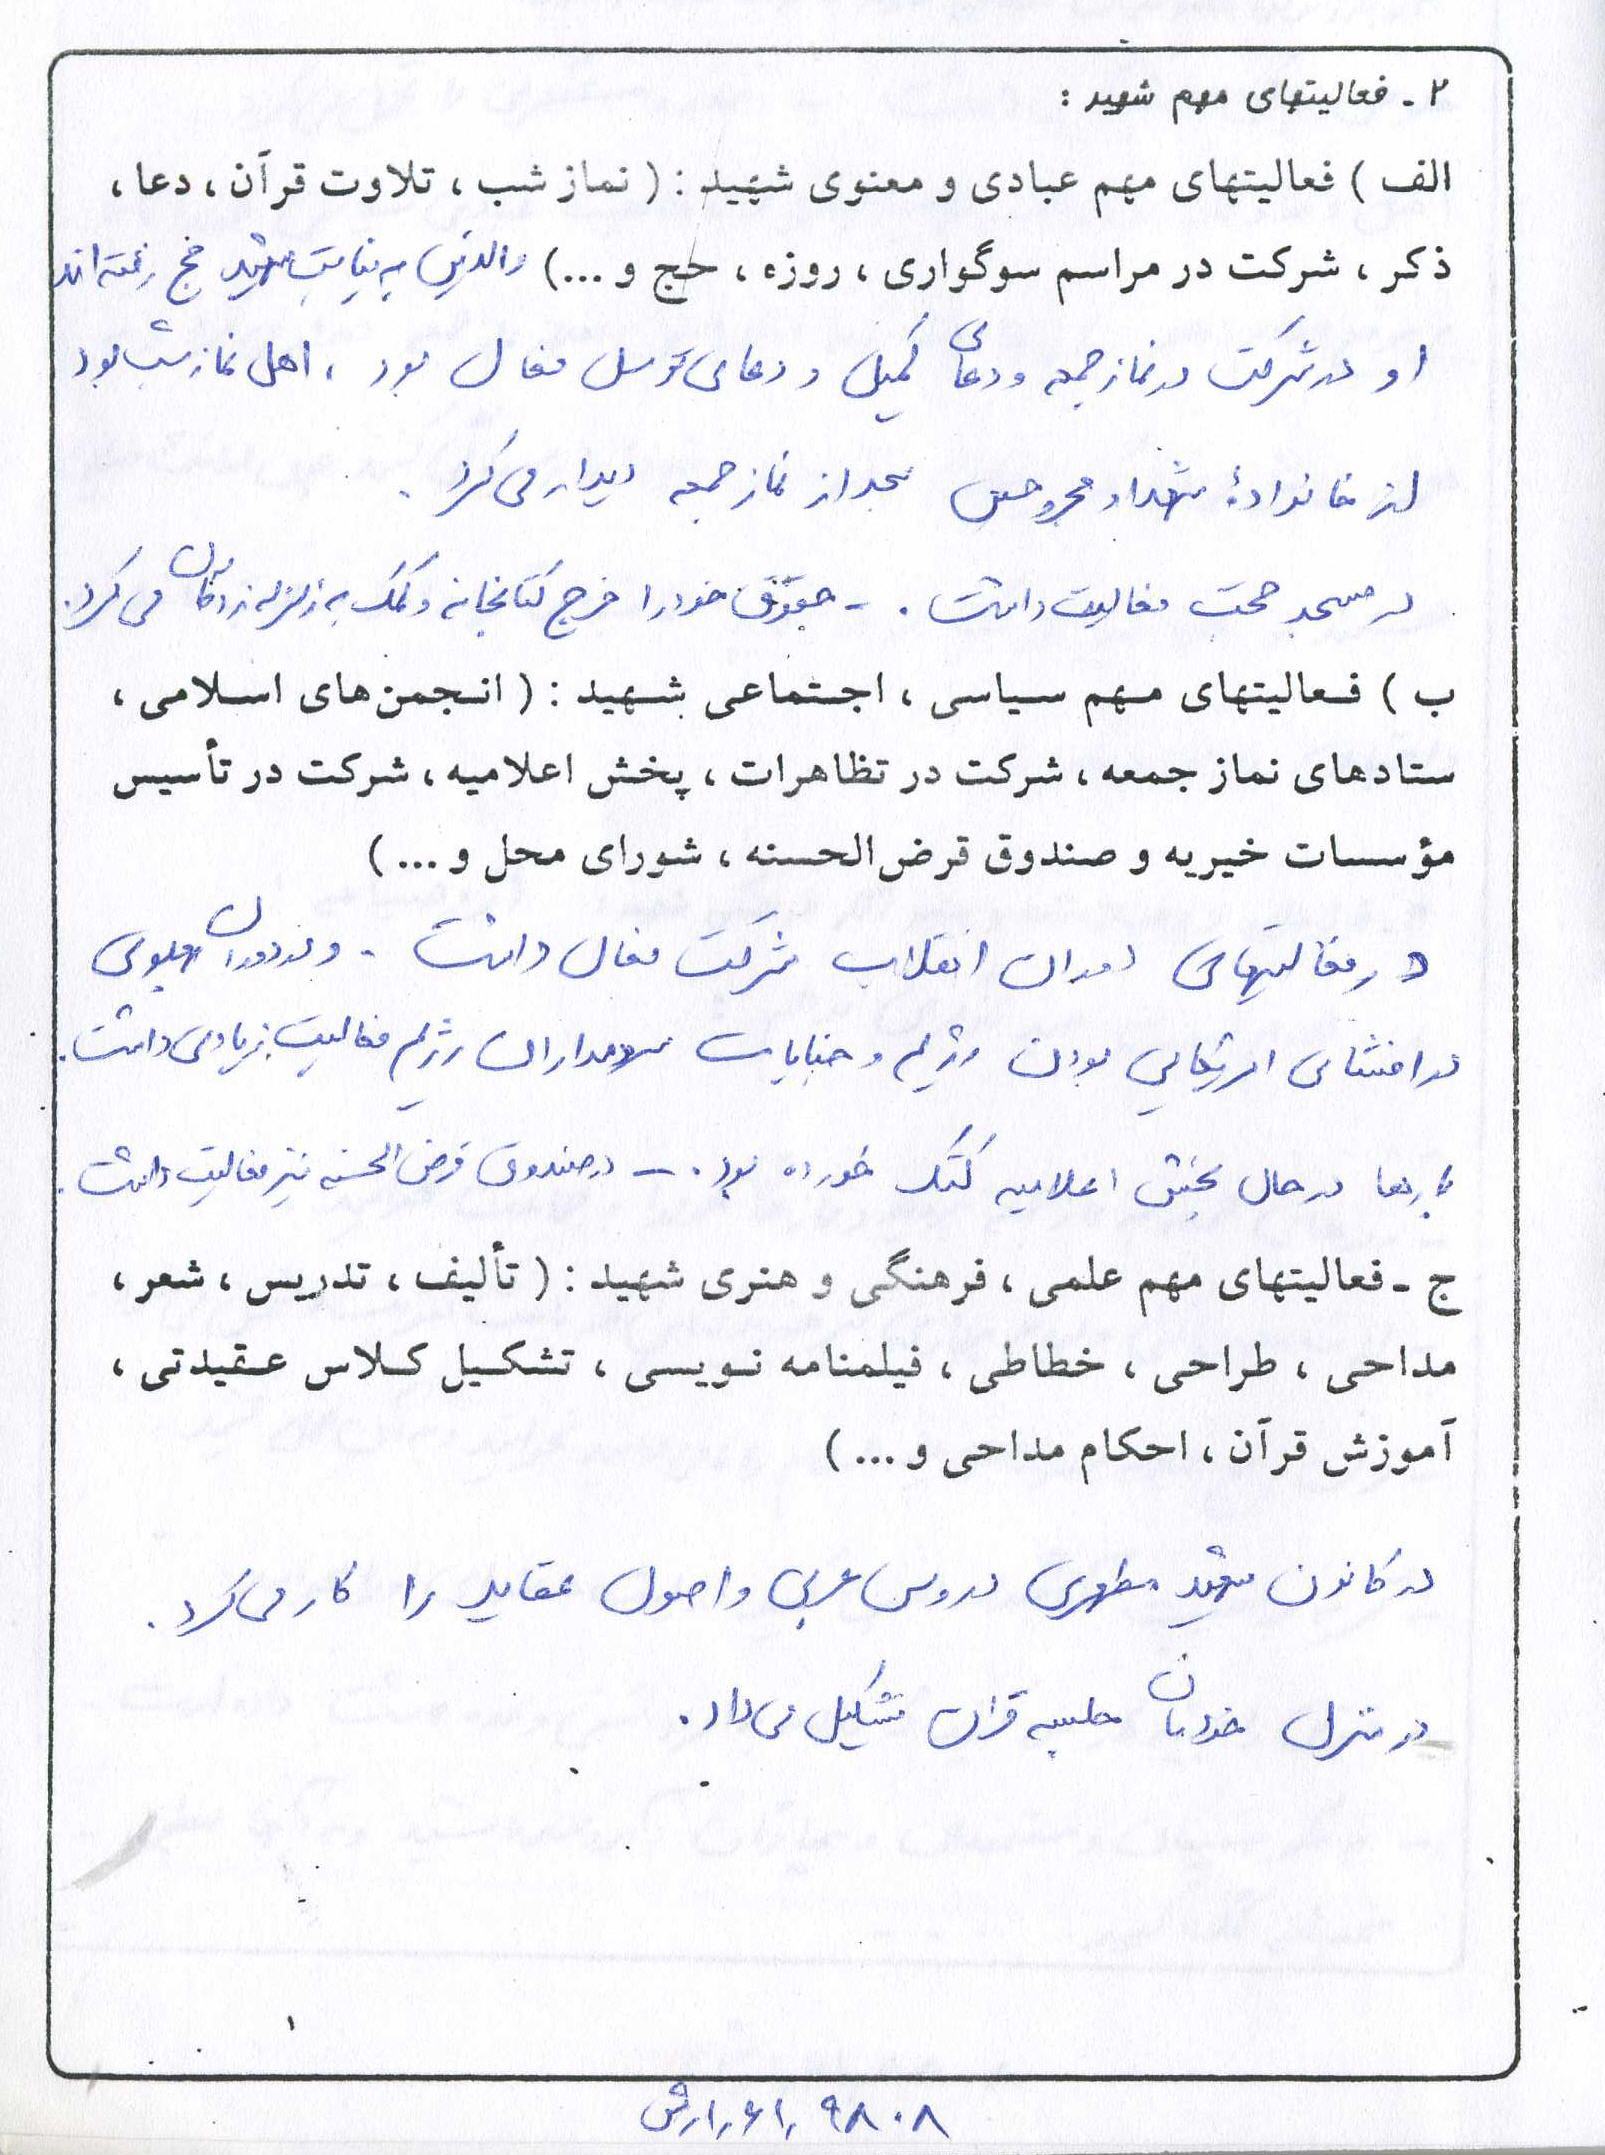 ۲ - فعالیتهای مهم شهید :
الف ) فعالیتهای مهم عبادی و معنوی شهید : ( نماز شب ، تلاوت قرآن ، دعا ،
ذکر ، شرکت در مراسم سوگواری ، روزه ، حج و ... ) والدین به نیابت شهید حج رفته‌اند
او در شرکت در نماز جمعه و دعای کمیل و دعای توسل فعال بود ، اهل نماز شب بود
از خانوادهٔ شهدا و مجروحین بعد از نماز جمعه دیدار می‌کرد .
در مسجد فعالیت داشت . - حقوق خود را خرج کتابخانه و کمک به زلزله زدگان می‌کرد .
ب ) فعالیتهای مهم سیاسی ، اجتماعی شهید : ( انجمن‌های اسلامی ،
ستادهای نماز جمعه ، شرکت در تظاهرات ، پخش اعلامیه ، شرکت در تأسیس
مؤسسات خیریه و صندوق قرض‌الحسنه ، شورای محل و ... )
در فعالیتهای دوران انقلاب شرکت فعال داشت . و در دوران پهلوی
در افشای امریکایی بودن رژیم و جنایات سردمداران رژیم فعالیت زیادی داشت .
بارها در حال پخش اعلامیه کتک خورده بود . - در صندوق قرض الحسنه نیز فعالیت داشت .
ج - فعالیتهای مهم علمی ، فرهنگی و هنری شهید : ( تألیف ، تدریس ، شعر ،
مداحی ، طراحی ، خطاطی ، فیلمنامه نویسی ، تشکیل کلاس عقیدتی ،
آموزش قرآن ، احکام مداحی و ... )
در کانون شهید مطهری دروس عربی و اصول عقاید را کار می‌کرد .
در منزل خودمان جلسه قران تشکیل می‌داد .
۹۸۰۸